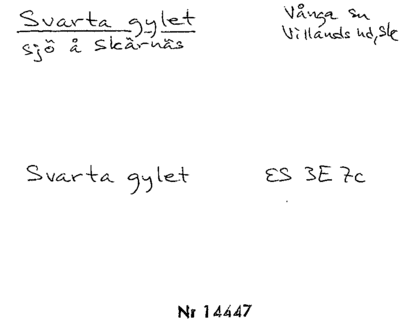 Svarta gylet
sjö å Skärnäs
Vånga sn
Villands hd, Sk
Svarta gylet
ES 3E 7c
Nr 14447